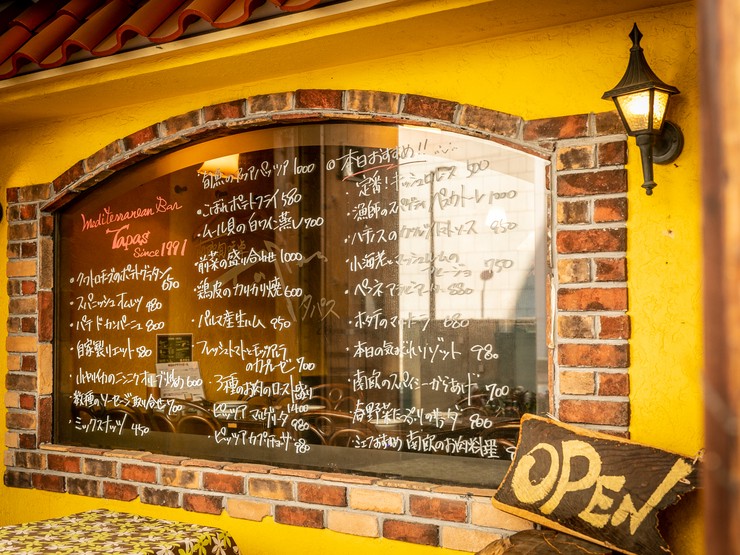 Mediterranean Bar
Tapas
Since 1991
・スパニッシュオムレツ 480
・パテドカンパーニュ 800
・自家製リエット 580
・小ヤリイカのニンニクオイル炒め 600
・数種のソーセージ取り合せ 700
・ミックスナッツ 450
・旬魚のアクアパッツァ 1000
・こぼれポテトフライ 580
・ムール貝の白ワイン蒸し 900
・前菜の盛り合わせ 1000
・鶏皮のカリカリ焼 600
・パルマ産生ハム 950
フレッシュトマトとモッツァレラ
のカプレーゼ 700
・3種のお肉のロースト盛り
1400
・ピッツァ マルゲリータ 980
・ピッツァ カプリチョーザ
◎本日おすすめ!!
・漁師のスパゲティ ペスカトーレ 1000
950
・小海老とマッシュルームの
750
880
・ホタテの 680
・本日の気まぐれリゾット 980
・南欧のスパイシーからあげ 700
・海野菜たっぷりのサラダ 800
・シェフおすすめ 南欧のお肉料理
OPEN